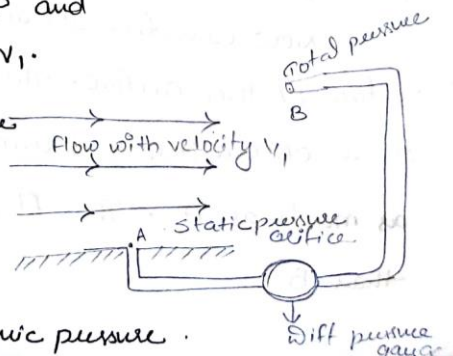 and
V₁.
Total pressure
B
flow with velocity V₁
static pressure
orifice
A
mic pressure.
Diff pressure
gauge